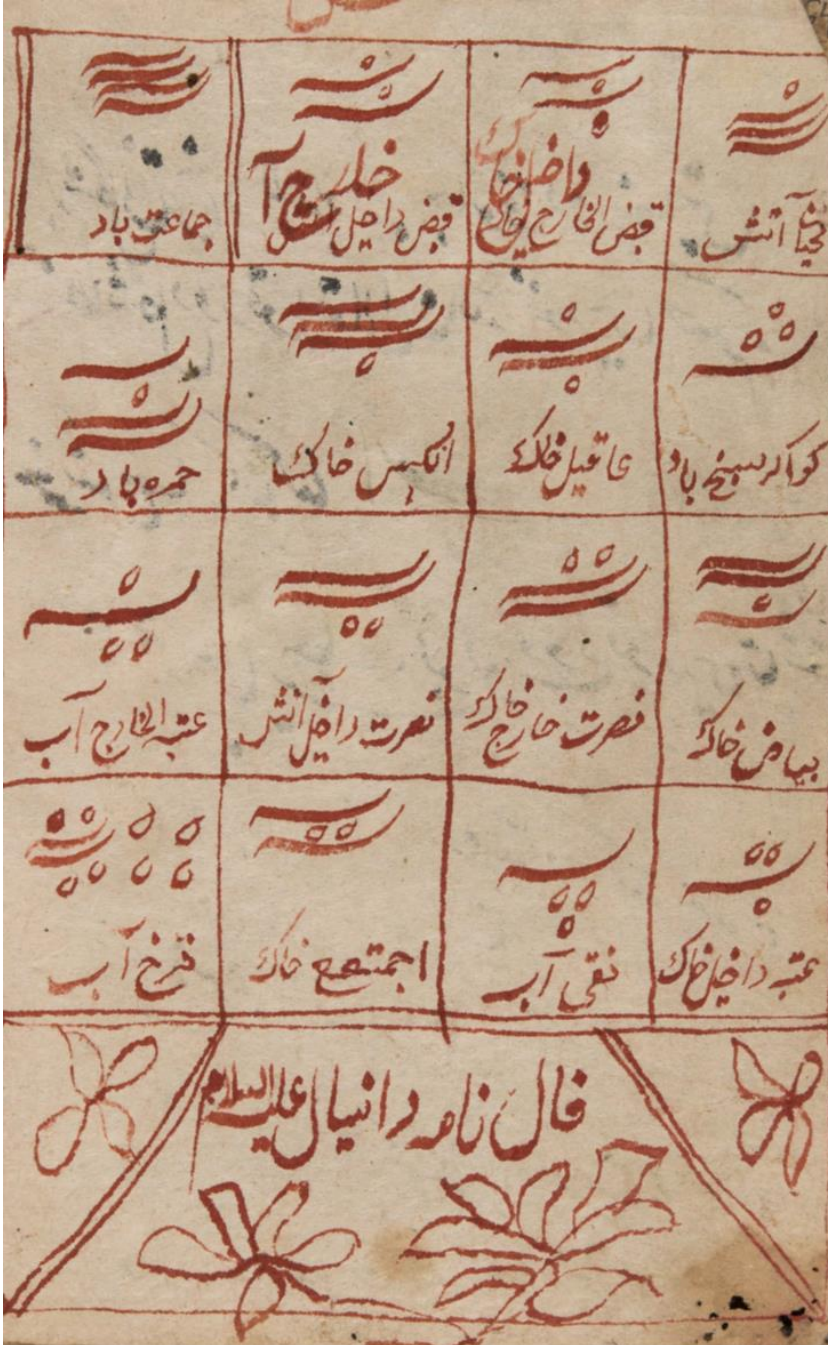 لحیان آتش
داخل خاک
قبض الخارج خاک
خارج آ
قبض داخل آتش
جماعت باد
کواکر سبخ باد
عاقیل خاک
انکیس خاک
حمره باد
بیاض خاک
نصرت خارج خاک
نصرت داخل آتش
عتبه الخارج آب
عتبه داخل خاک
نقی آب
اجمتمع خاک
فرخ آب
فال نامه دانیال علیه السلام